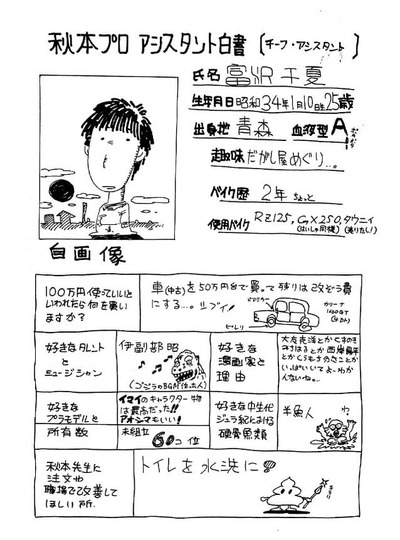 秋本プロ アシスタント白書 〔チーフ・アシスタント〕
氏名 富沢千夏
生年月日 昭和34年1月10日生25歳
出身地 青森 血液型 A
趣味 だがし屋めぐり…。
バイク歴 2年 ちょっと
使用バイク RZ125, CX250, タウニィ
自画像
100万円使っていいと
いわれたら何を買い
ますか?
車(中古)を50万円台で買って残りは改ぞう費
にする…。シブイ!
好きなタレント
と
ミュージシャン
伊副部昭
(ゴジラのBGM作った人)
好きな
漫画家と
理由
大友克洋とか
好きな
プラモデルと
所有数
イマイのキャラクター物
は最高だった!!
アオシマもいい!
未組立
60コ位
好きな中生代
ジュラ紀における
硬骨魚類
半魚人
秋本先生に
注文や
職場で改善して
ほしい所.
トイレを水洗に!